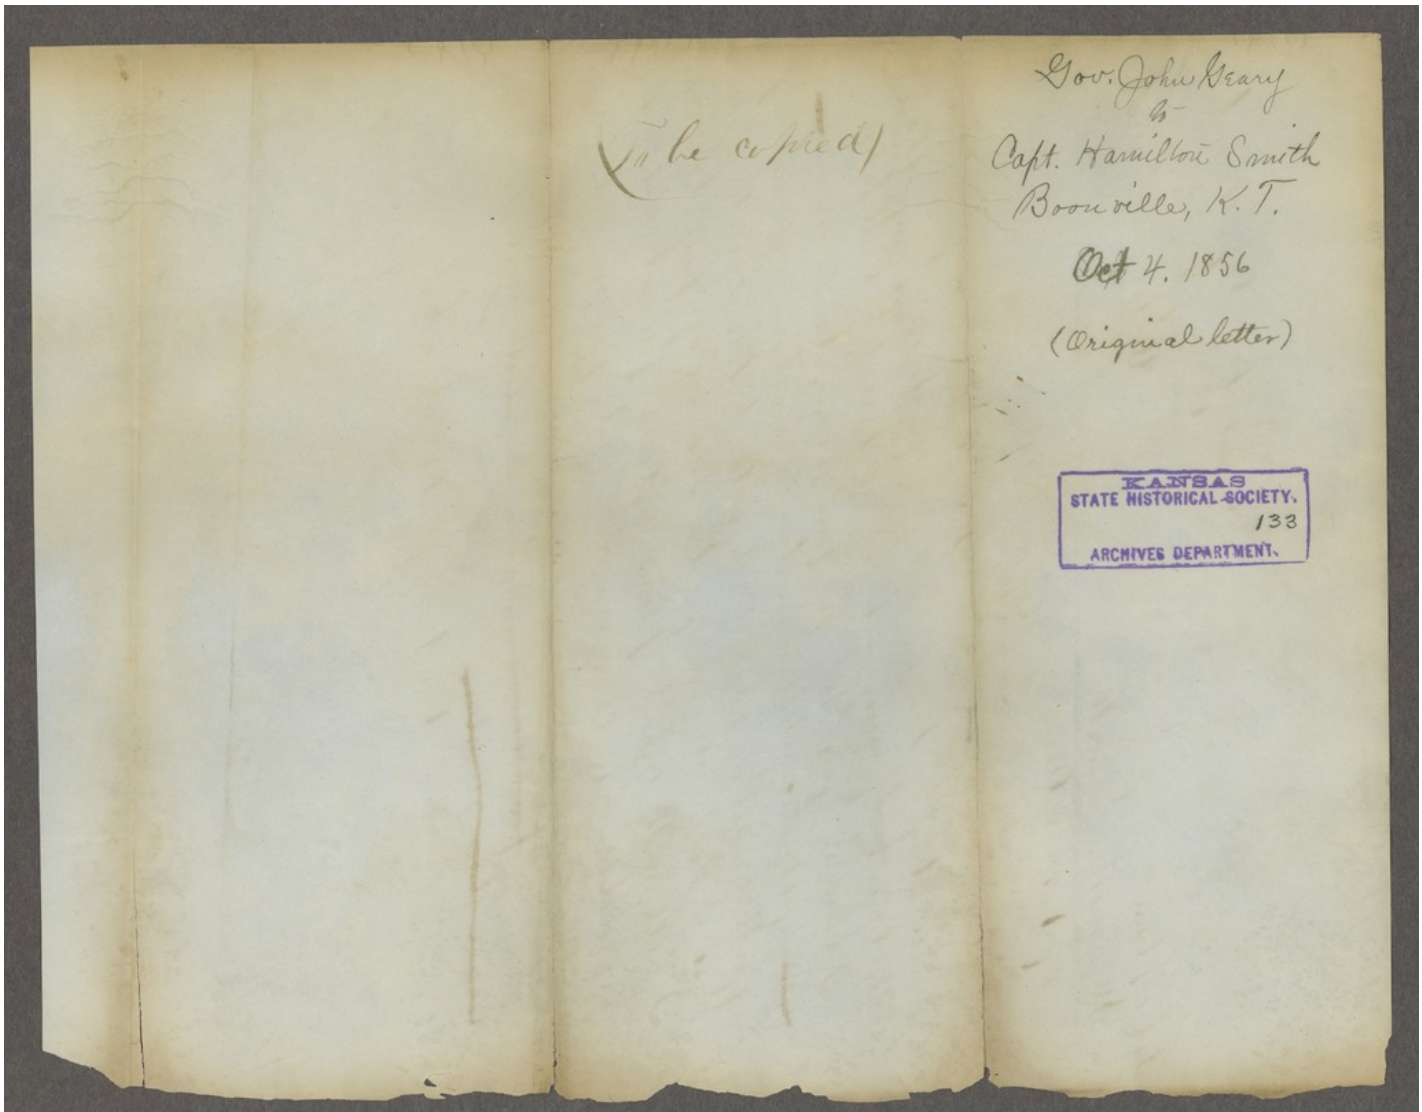 (To be copied)
Gov. John Geary
to
Capt. Hamilton Smith
Boonville, K. T.
Oct 4. 1856
(Original letter)
KANSAS
STATE HISTORICAL SOCIETY.
133
ARCHIVES DEPARTMENT.